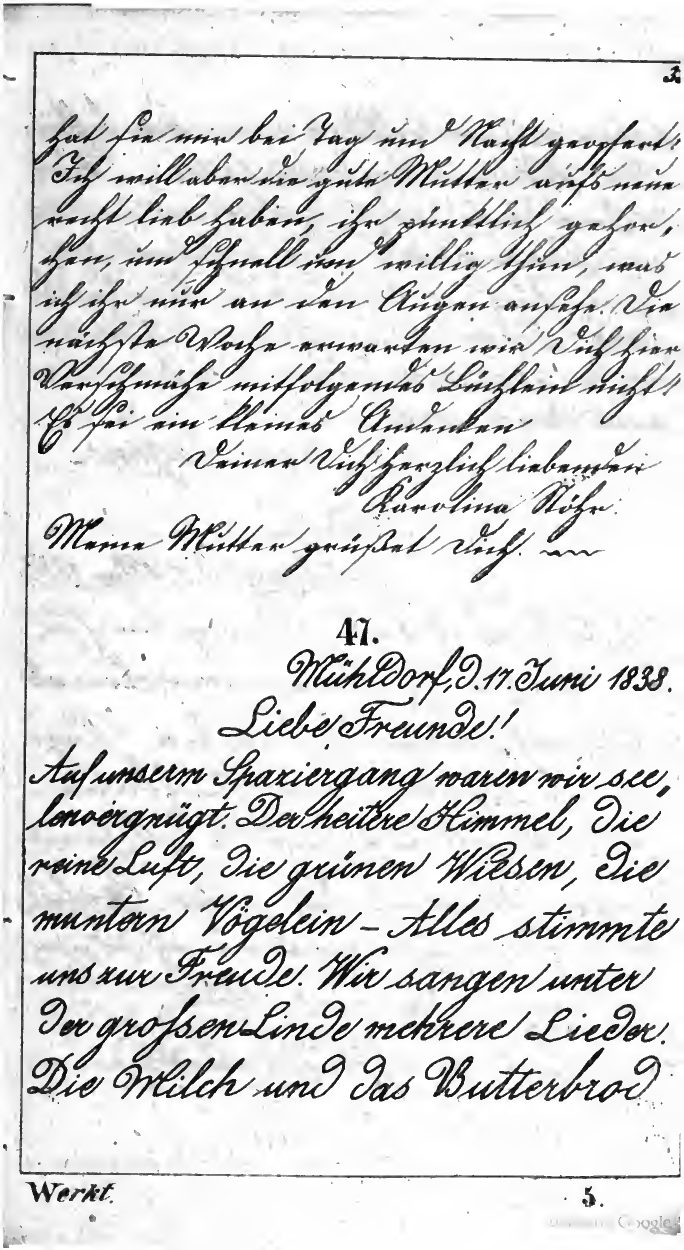 hat sie mir bei Tag und Nacht geopfert!
Ich will aber die gute Mutter aufs neue
recht lieb haben, ihr pünktlich gehor„
chen, und schnell und willig thun, was
ich ihr nur an den Augen ansehe. Die
nächste Woche erwarten wir Dich hier
Verschmähe mitfolgendes Büchlein nicht!
Es sei ein kleines Andenken
Deiner Dich herzlich liebenden
Karolina Stöhr.
Meine Mutter grüßet Dich.
47.
Mühldorf, d. 17. Juni 1838.
Liebe Freunde!
Auf unserm Spaziergang waren wir see„
lenvergnügt. Der heitere Himmel, die
reine Luft, die grünen Wiesen, die
muntern Vögelein – Alles stimmte
uns zur Freude. Wir sangen unter
der grossen Linde mehrere Lieder.
Die Milch und das Butterbrod
Werkt. 5.
Google